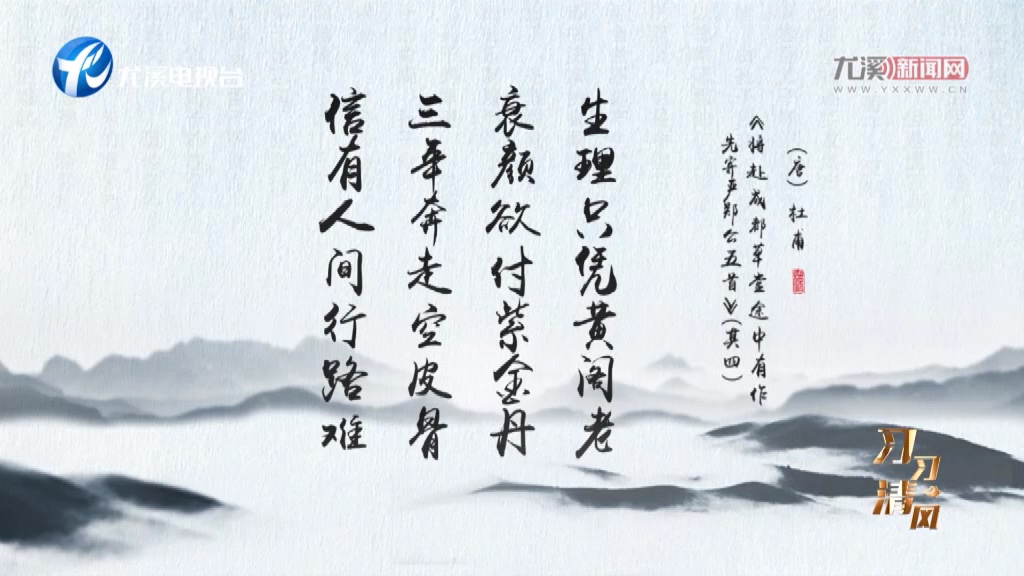 尤溪电视台
尤溪新闻网
WWW.YXXWW.CN
(唐)杜甫
《将赴成都草堂途中有作
先寄严郑公五首》(其四)
生理只凭黄阁老
衰颜欲付紫金丹
三年奔走空皮骨
信有人间行路难
习习清风